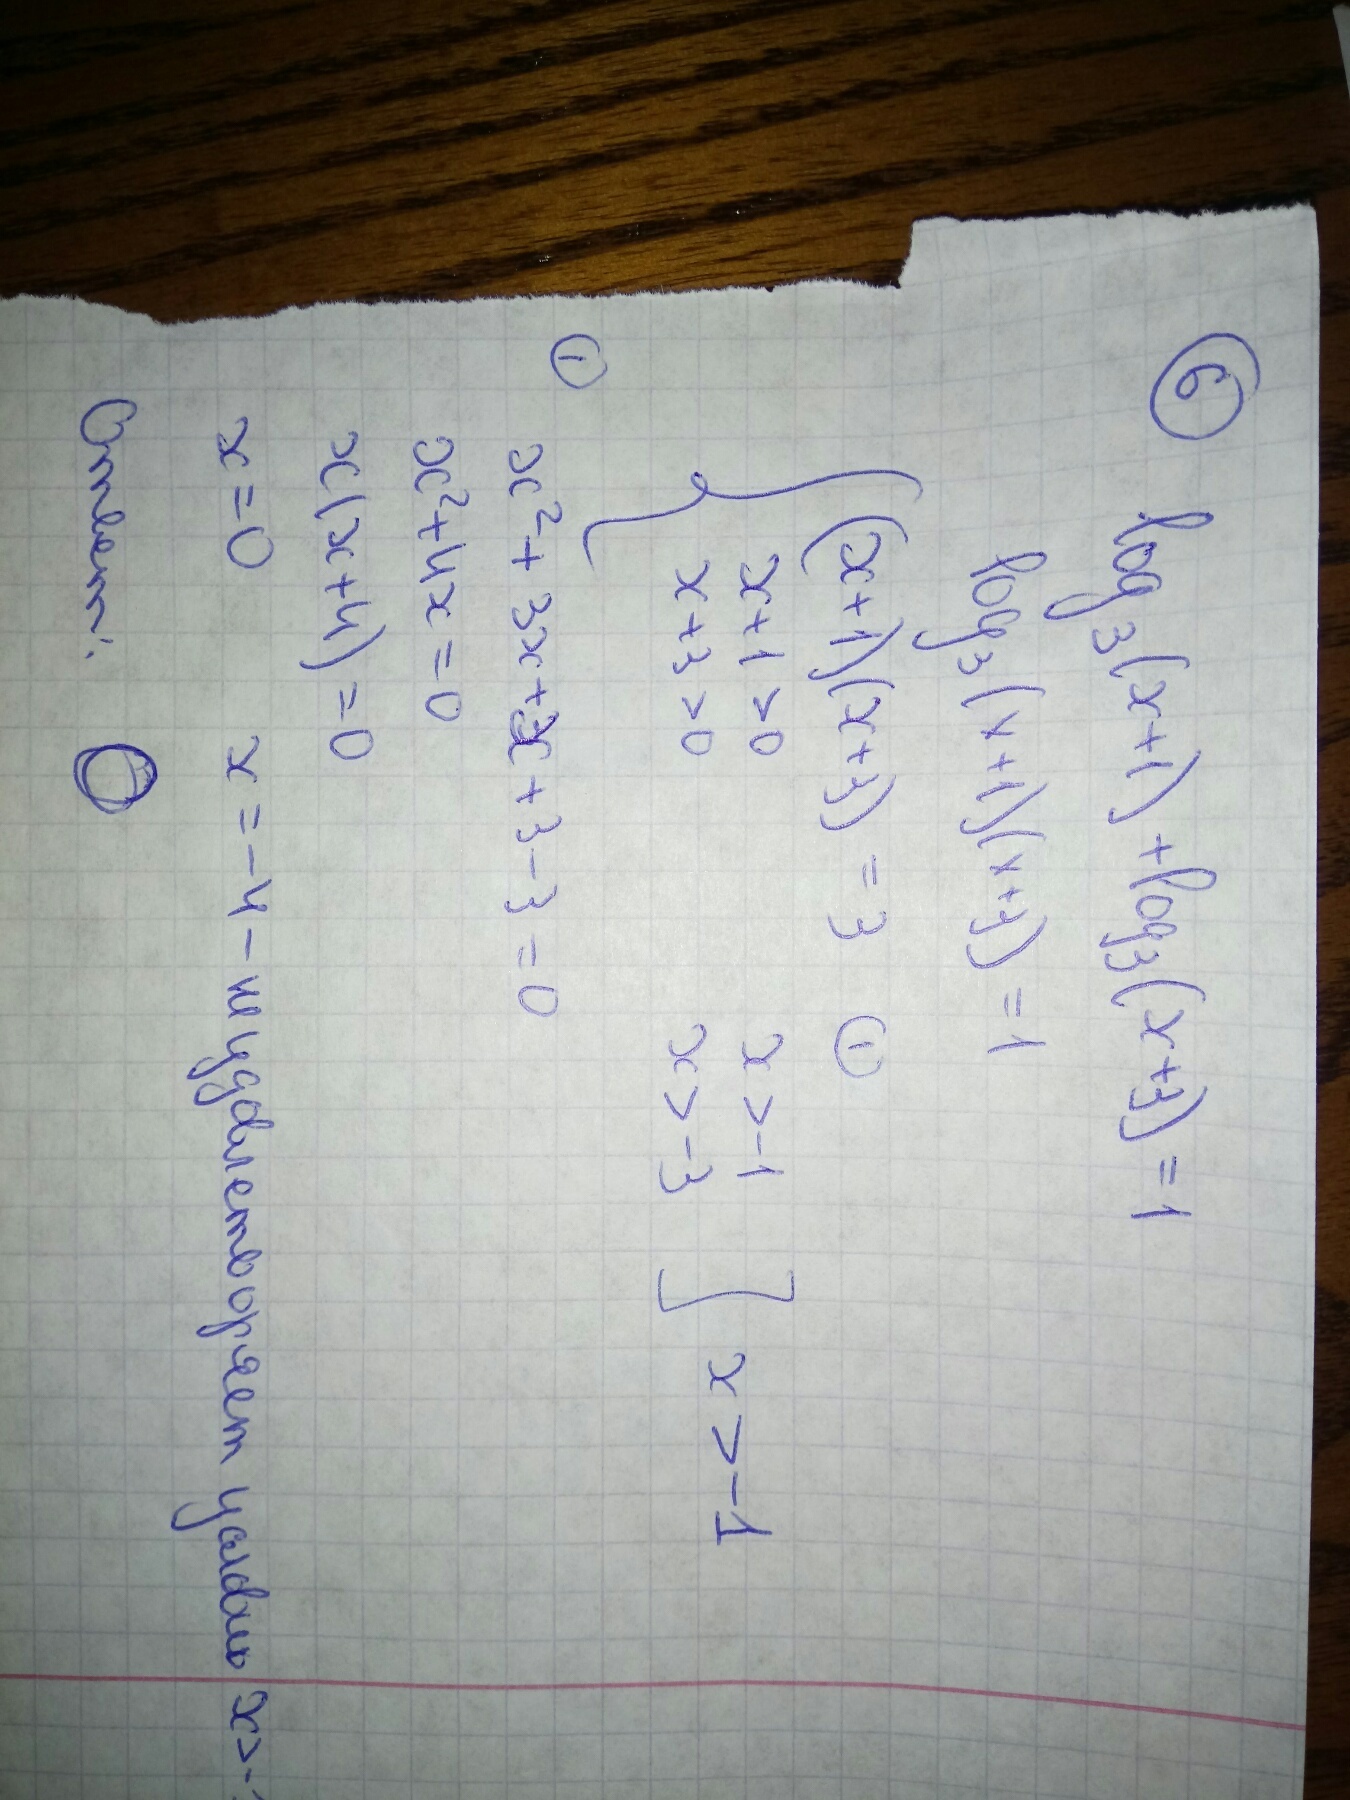 ⑥ log₃(x+1)+log₃(x+3)=1
log₃(x+1)(x+3)=1
(x+1)(x+3)=3 ①
x+1>0 x>-1
x+3>0 x>-3 ] x>-1
① x²+3x+x+3-3=0
x²+4x=0
x(x+4)=0
x=0 x=-4 - не удовлетворяет условию x>-1
Ответ: 0